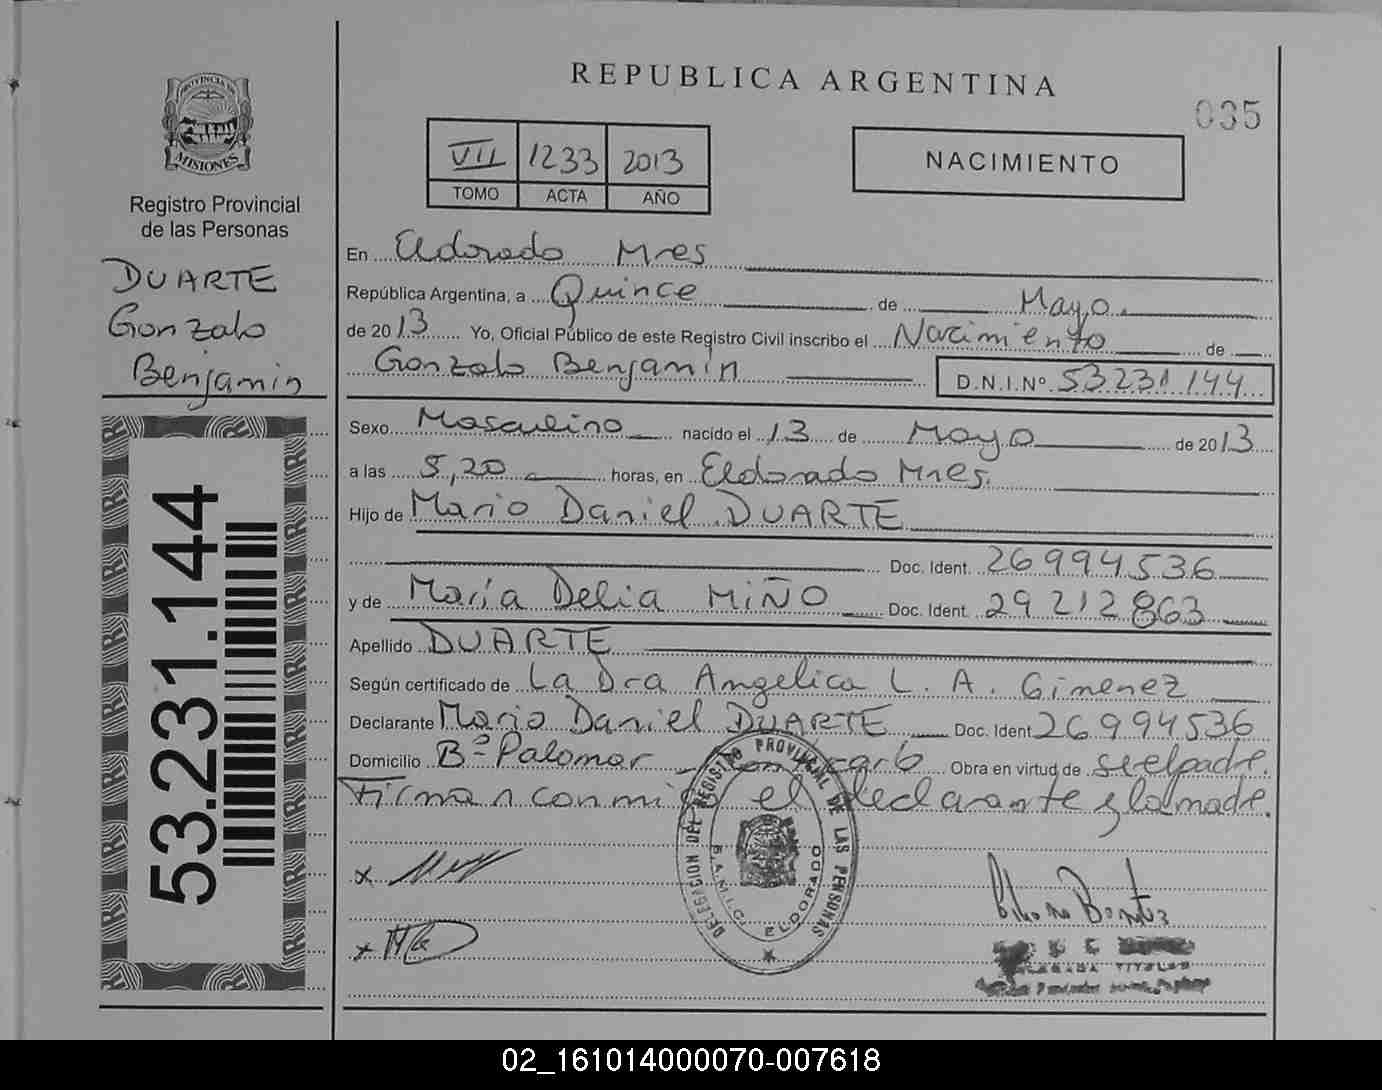 PROVINCIA DE
MISIONES
Registro Provincial
de las Personas
DUARTE
Gonzalo
Benjamin
53.231.144
REPUBLICA ARGENTINA
035
VII 1233 2013
TOMO ACTA AÑO
NACIMIENTO
En Eldorado Mnes
República Argentina, a Quince de Mayo.
de 2013 Yo, Oficial Público de este Registro Civil inscribo el Nacimiento de
Gonzalo Benjamin D.N.I.Nº 53231144
Sexo Masculino nacido el 13 de Mayo de 2013
a las 5,20 horas, en Eldorado Mnes.
Hijo de Mario Daniel DUARTE
Doc. Ident. 26994536
y de María Delia MIÑO Doc. Ident. 29212863
Apellido DUARTE
Según certificado de La Dra Angelica L. A. Gimenez
Declarante Mario Daniel DUARTE Doc. Ident 26994536
Domicilio Bº Palomar Obra en virtud de ser el padre.
Firman conmigo el declarante y la madre.
DELEGACION DEL REGISTRO PROVINCIAL DE LAS PERSONAS
ELDORADO
02_161014000070-007618